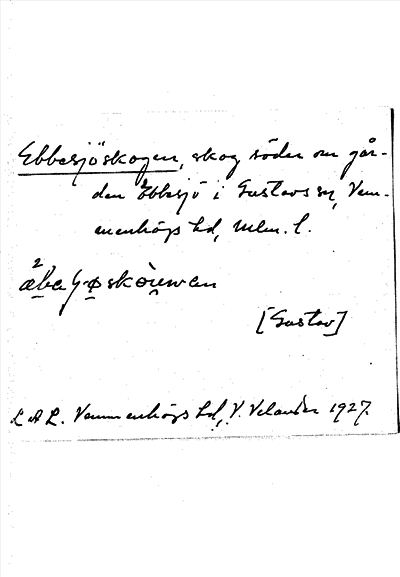 Ebbesjöskogen, skog söder om går-
den Ebbesjö i Gustavs sn, Vem-
menhögs hd, Mlm. l.
[Gustav]
L A L. Vemmenhögs hd, V. Velander 1927.